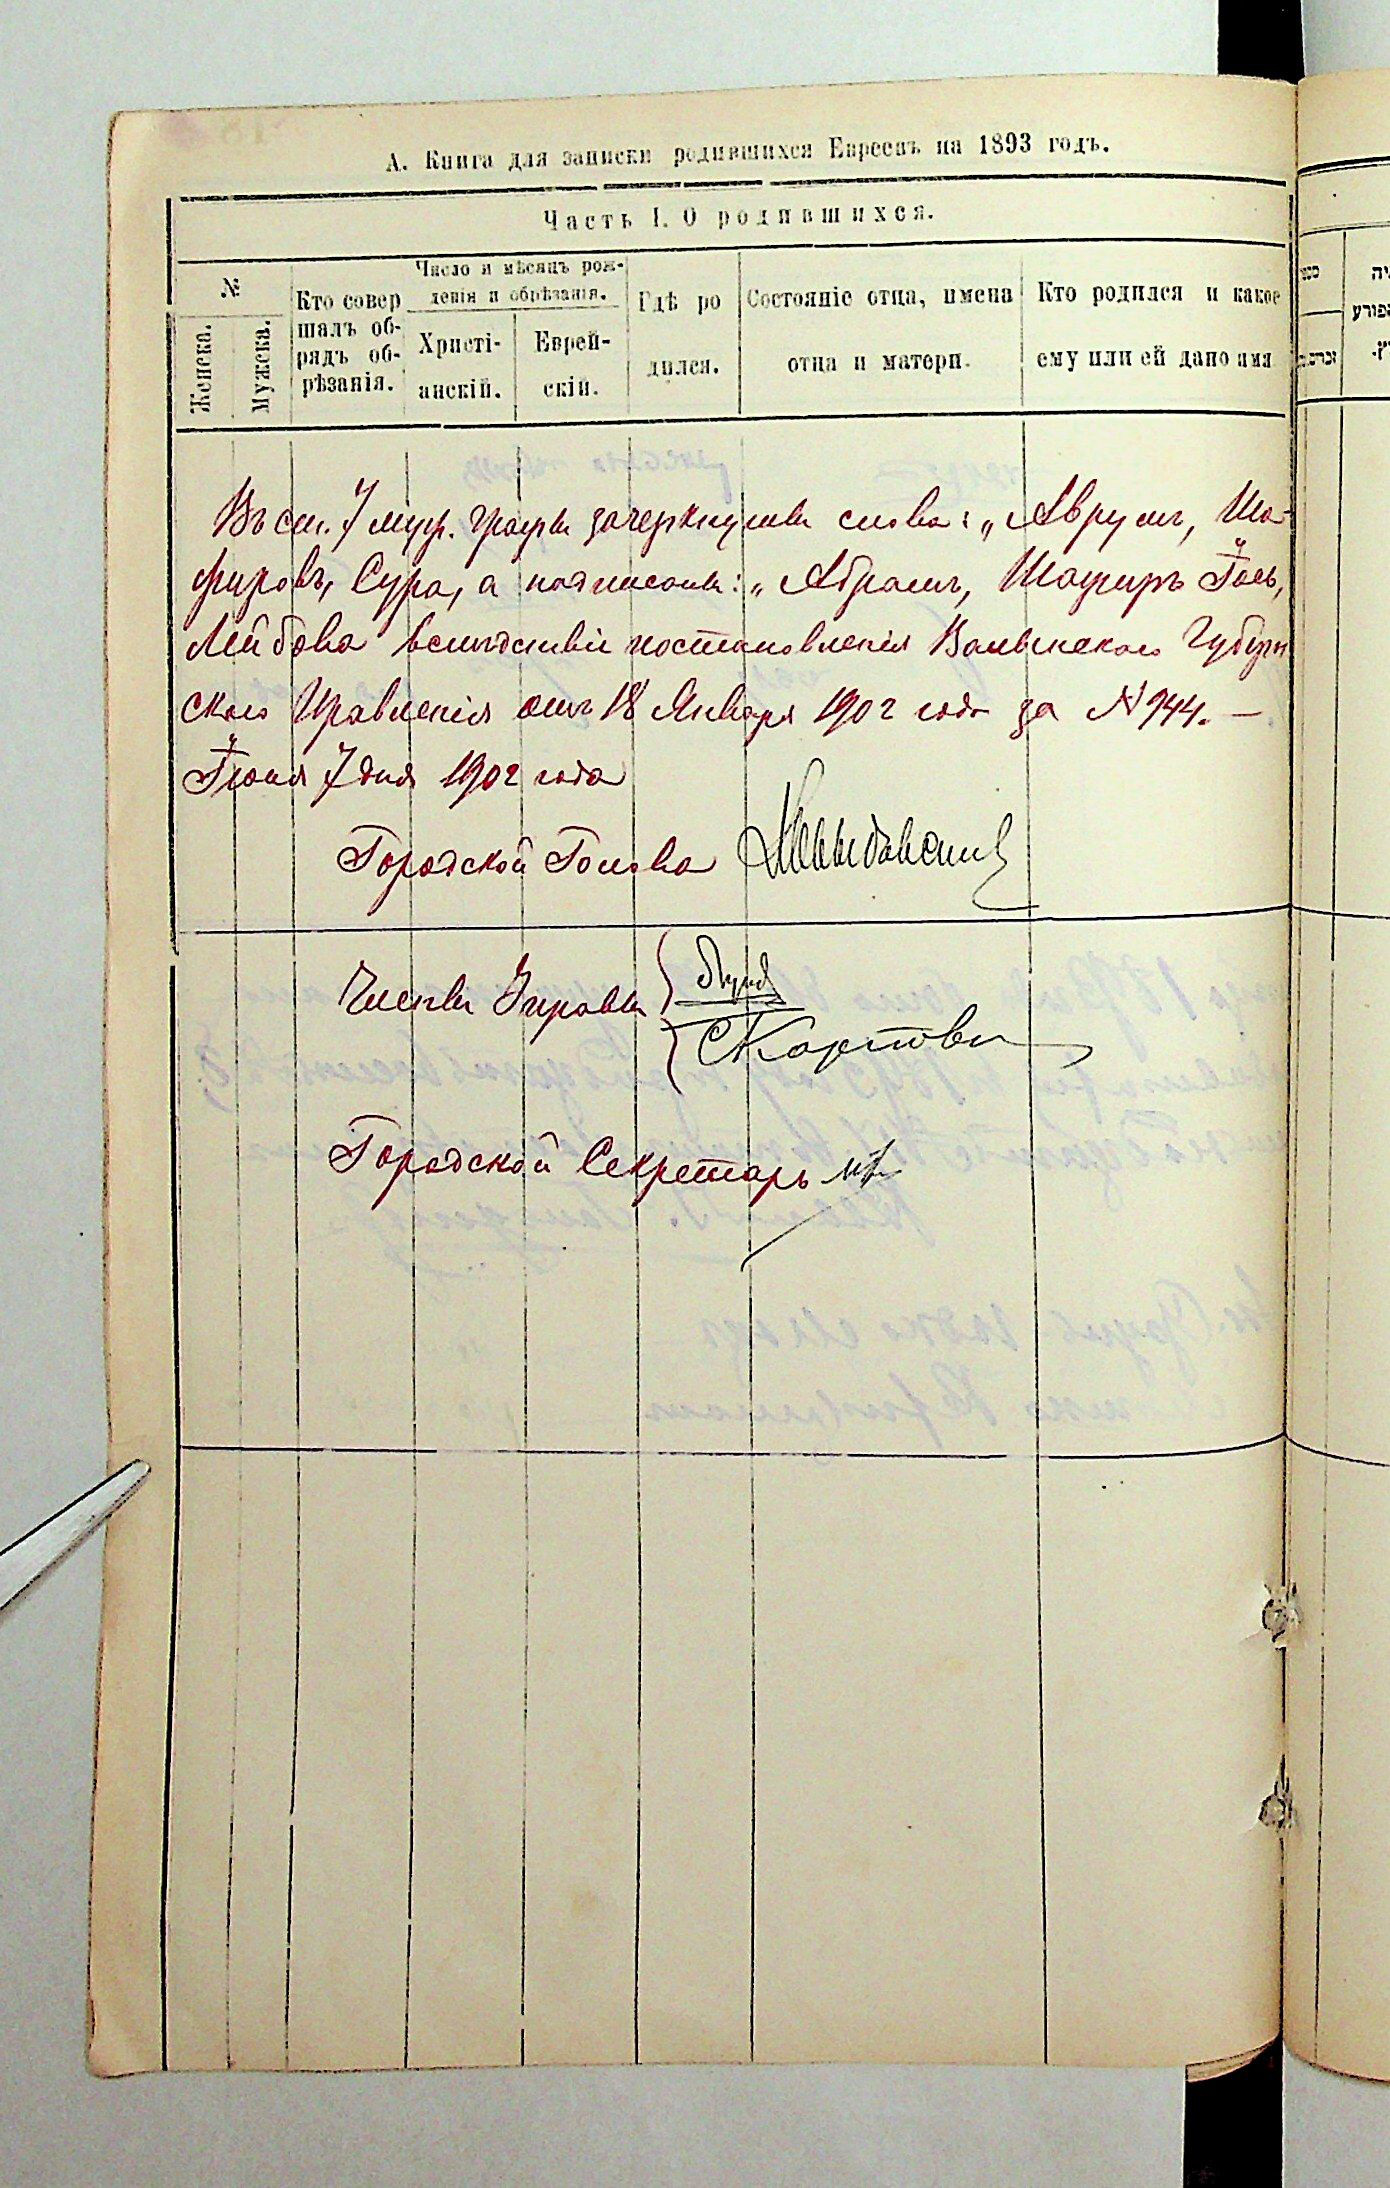 А. Книга для записки родившихся Евреевъ на 1893 годъ.
Часть I. О родившихся.
№
Женска.
Мужска.
Кто совер
шалъ об-
рядъ об-
рѣзанія.
Число и мѣсяцъ рож-
денія и обрѣзанія.
Христі-
анскій.
Еврей-
скій.
Гдѣ ро
дился.
Состояніе отца, имена
отца и матери.
Кто родился и какое
ему или ей дано имя
Въ ст. 7 муж. графы зачеркнуты слова: „Аврумъ, Ша-
фировъ, Сура, а надписаны: „Абрамъ, Шафиръ
Лейбова вслѣдствіи постановленія Волынскаго Губерн
скаго Правленія отъ 18 Января 1902 года за № 944. —
Іюня 7 дня 1902 года
Городской Голова
Члены Управы
Городской Секретарь